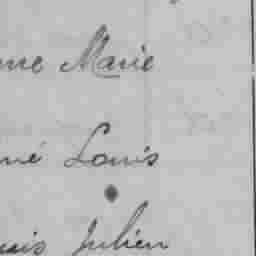 nne Marie
né Louis
uis Julien